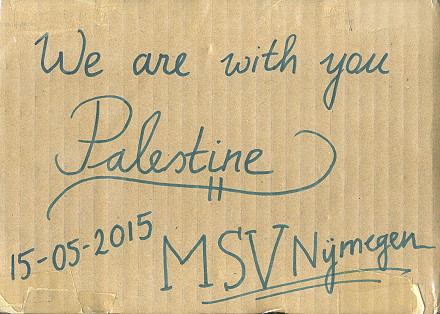 We are with you
Palestine
15-05-2015
MSV Nijmegen